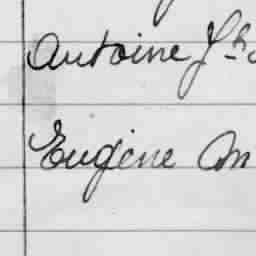 Antoine Jr
Eugène M